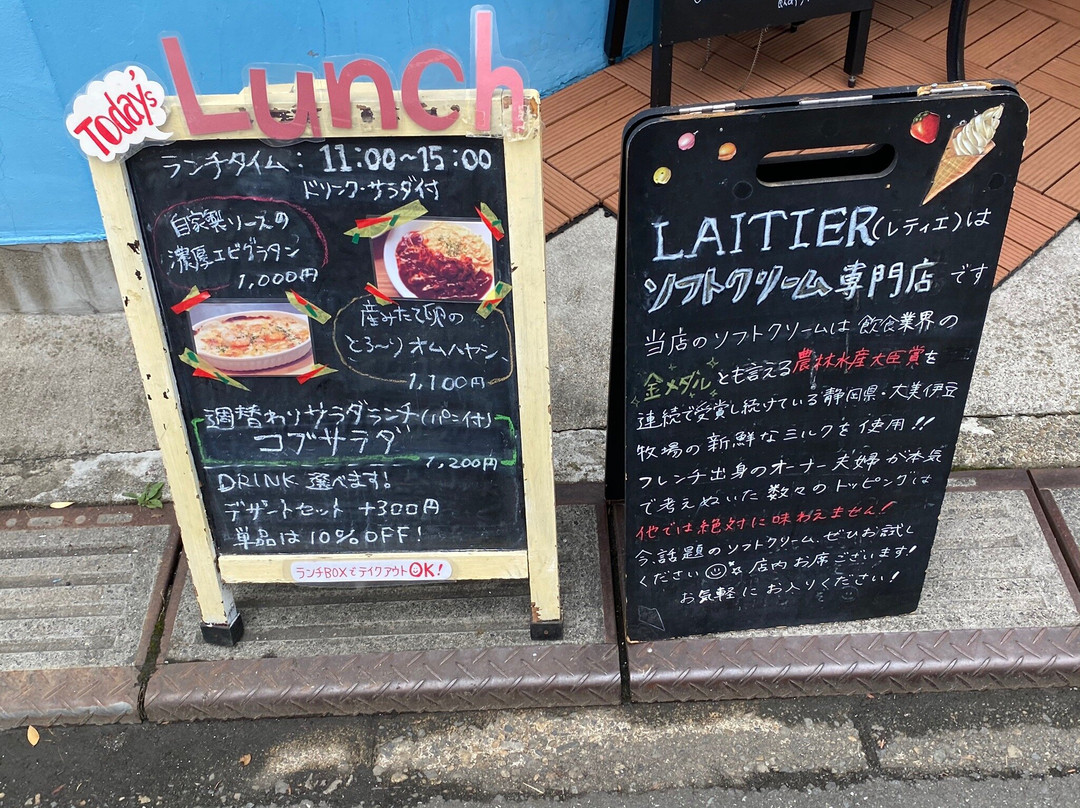 Today's
Lunch
ランチタイム： 11:00～15:00
ドリンク・サラダ付
自家製ソースの
濃厚エビグラタン
1,000円
産みたて卵の
とろ～りオムハヤシ
1,100円
週替わりサラダランチ(パン付)
コブサラダ
1,200円
DRINK 選べます!
デザートセット +300円
単品は10%OFF!
ランチBOXでテイクアウトOK!
LAITIER(レティエ)は
ソフトクリーム専門店です
当店のソフトクリームは飲食業界の
金メダルとも言える農林水産大臣賞を
連続で受賞し続けている静岡県・大美伊豆
牧場の新鮮なミルクを使用!!
フレンチ出身のオーナー夫婦が本気
で考えぬいた数々のトッピングは
他では絶対に味わえません!
今、話題のソフトクリーム、ぜひお試し
ください 店内お席ございます!
お気軽にお入りください!